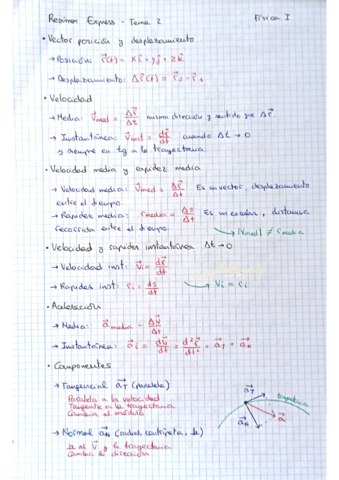 Resumen Express - Tema 2 Física I
• Vector posición y desplazamiento
→ Posición: r⃗(t) = xî + yĵ + zk̂
→ Desplazamiento: Δr⃗(t) = r⃗₂ - r⃗₁
• Velocidad
→ Media: v⃗med = Δr⃗/Δt misma dirección y sentido que Δr⃗.
→ Instantánea: v⃗inst = dr⃗/dt cuando Δt → 0
y siempre en tg a la trayectoria.
• Velocidad media y rapidez media
→ Velocidad media: v⃗med = Δr⃗/Δt Es un vector, desplazamiento
entre el tiempo.
→ Rapidez media: rmedia = Δs/Δt Es un escalar, distancia
recorrida entre el tiempo.
→ |v⃗med| ≠ rmedia
• Velocidad y rapidez instantánea Δt → 0
→ Velocidad inst: v⃗i = dr⃗/dt
→ Rapidez inst: ri = ds/dt → Vi = ri
• Aceleración
→ Media: a⃗media = Δv⃗/Δt
→ Instantánea: a⃗i = dv⃗/dt = d²r⃗/dt² = a⃗T + a⃗N
• Componentes
→ Tangencial a⃗T (paralela)
Paralela a la velocidad
Tangente a la trayectoria
Cambia el módulo
→ Normal a⃗N (radial, centrípeta, ⊥)
⊥ al v⃗ y la trayectoria
Cambia la dirección
a⃗T
trayectoria
a⃗N
a⃗